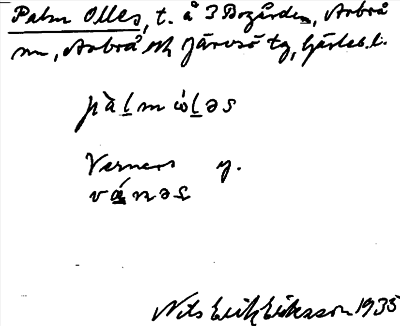 Palm Olles, t. å 3 Bogården, Arbrå
sn, Arbrå och Järvsö tg, Gävleb. l.
pàlmòləs
Verners g.
vánəs
Nils Erik Eriksson 1935